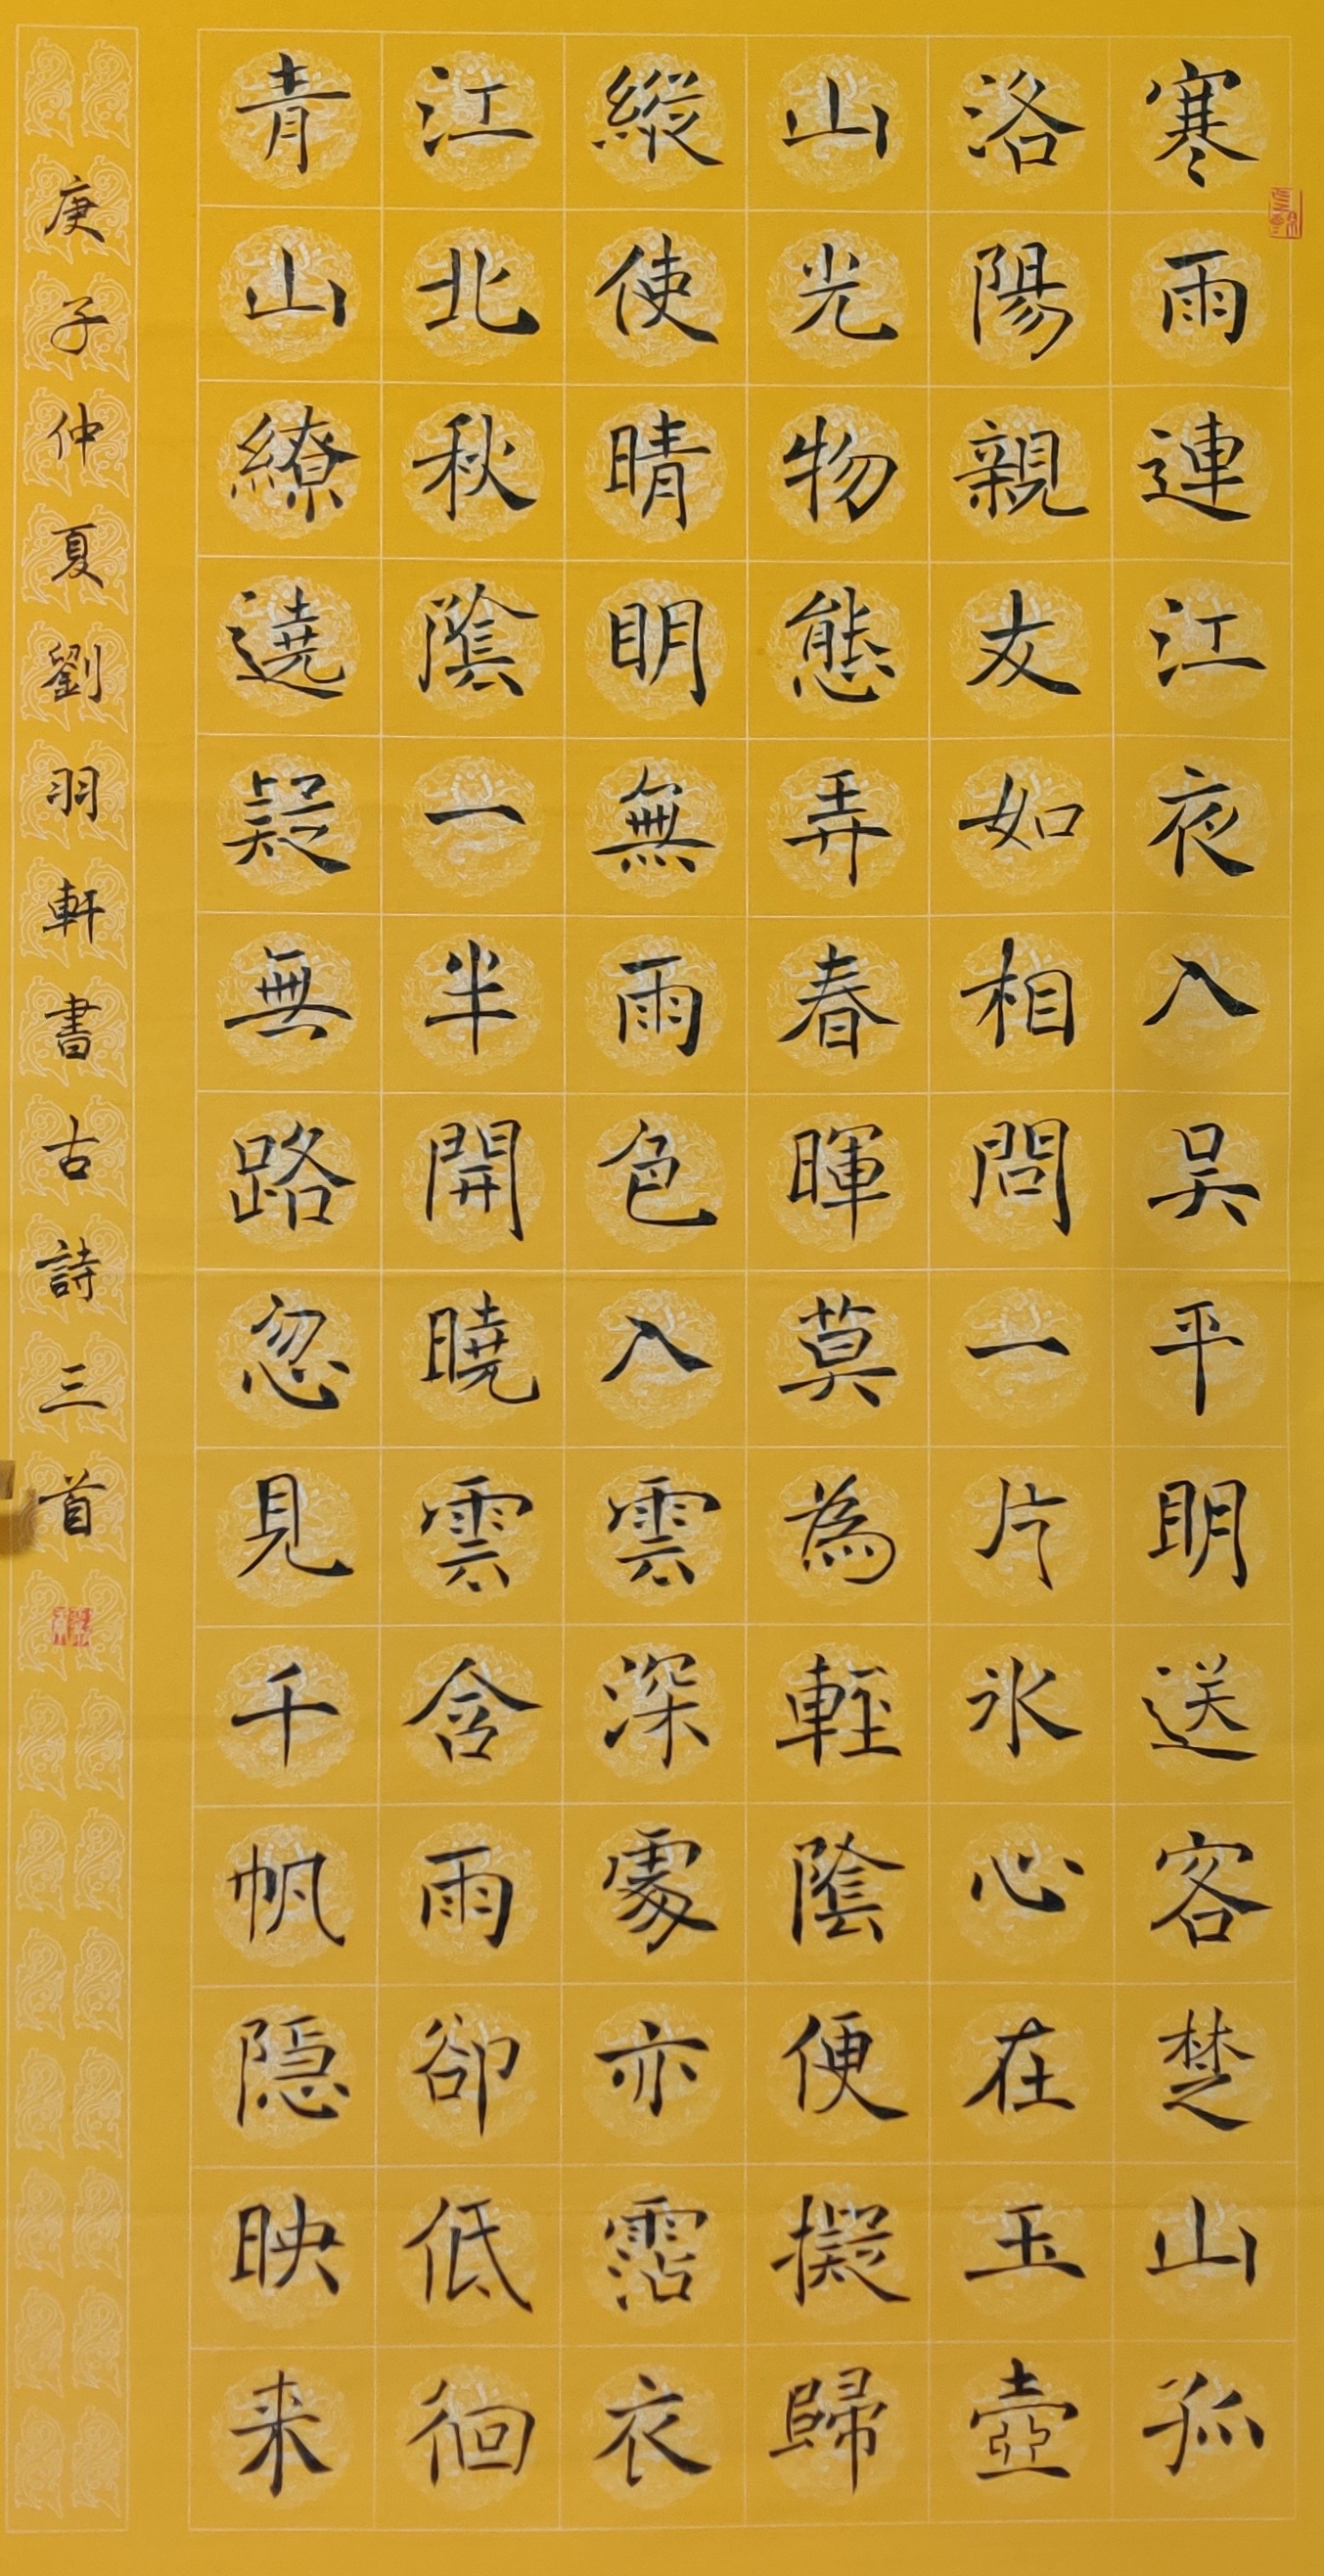 寒雨連江夜入吴平明送客楚山孤
洛陽親友如相問一片氷心在玉壺
山光物態弄春暉莫為輕陰便擬歸
縱使晴明無雨色入雲深處亦霑衣
江北秋陰一半開曉雲含雨卻低徊
青山繚遶疑無路忽見千帆隱映来
庚子仲夏劉羽軒書古詩三首